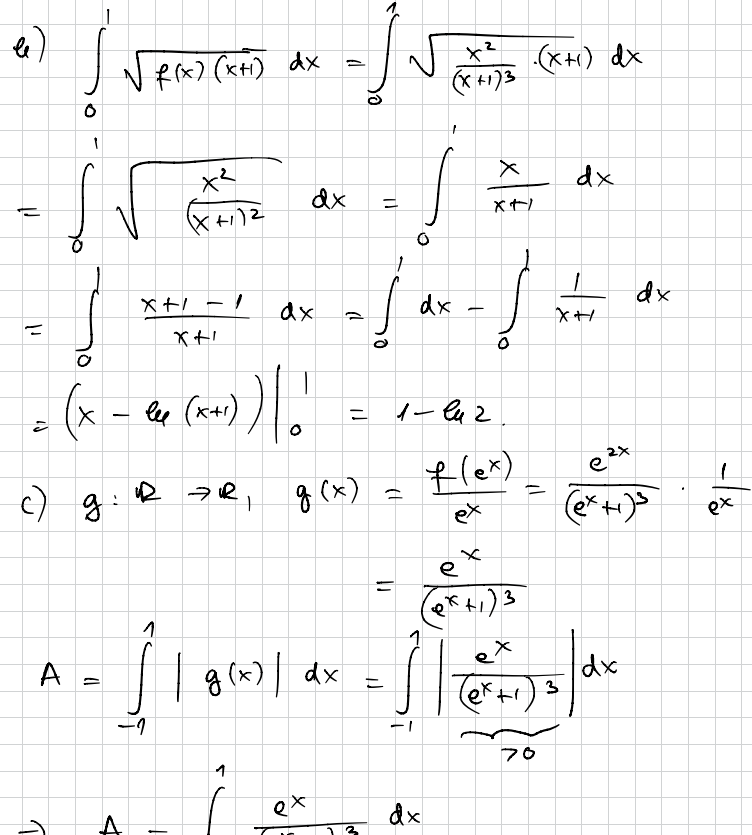 b) ∫₀¹ √(f(x)(x+1)) dx = ∫₀¹ √(x²/(x+1)³ · (x+1)) dx
= ∫₀¹ √(x²/(x+1)²) dx = ∫₀¹ x/(x+1) dx
= ∫₀¹ (x+1-1)/(x+1) dx = ∫₀¹ dx - ∫₀¹ 1/(x+1) dx
= (x - ln(x+1)) |₀¹ = 1 - ln 2.
c) g: ℝ → ℝ, g(x) = f(eˣ)/eˣ = e²ˣ/(eˣ+1)³ · 1/eˣ
= eˣ/(eˣ+1)³
A = ∫₋₁¹ |g(x)| dx = ∫₋₁¹ |eˣ/(eˣ+1)³| dx
>0
A = ∫¹ eˣ dx